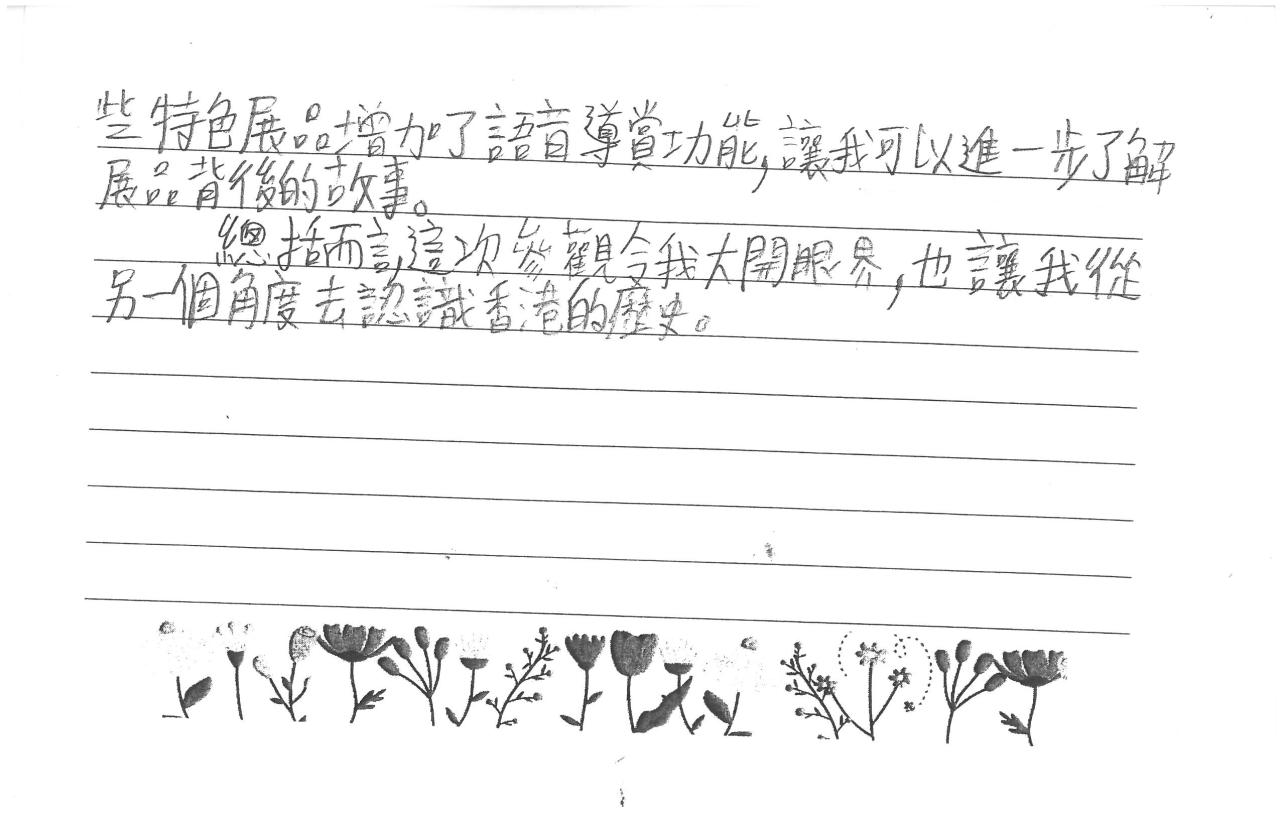 些特色展品增加了語音導賞功能,讓我可以進一步了解
展品背後的故事。
總括而言,這次參觀令我大開眼界,也讓我從
另一個角度去認識香港的歷史。